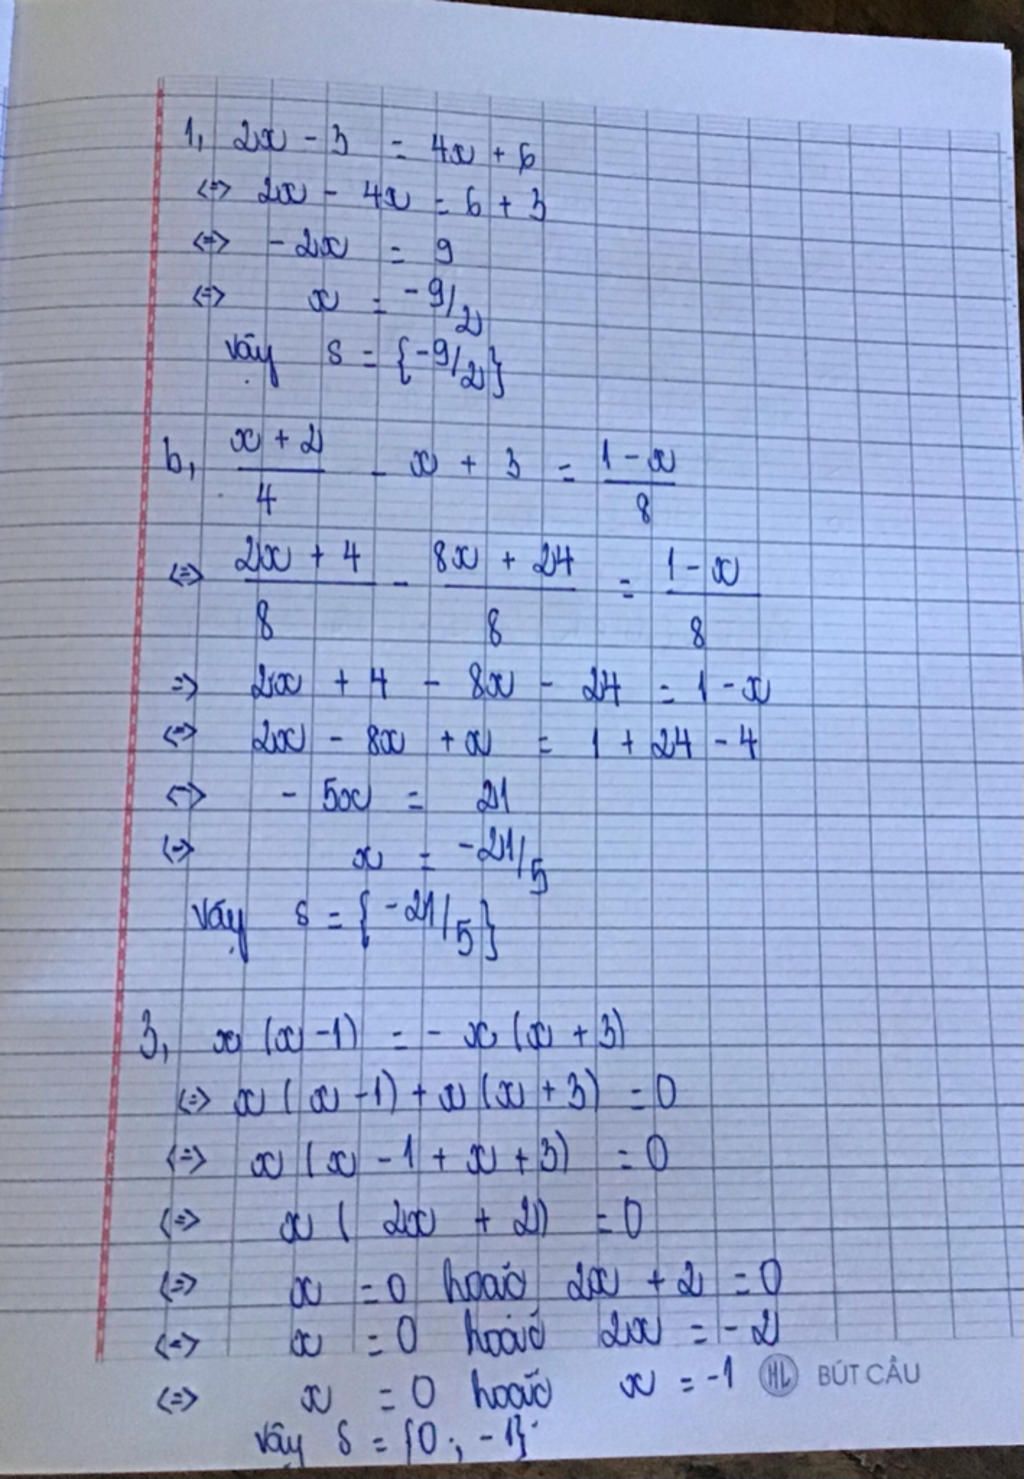 1, 2x - 3 = 4x + 6
<=> 2x - 4x = 6 + 3
<=> - 2x = 9
<=> x = -9/2
Vậy S = {-9/2}
b, (x + 2)/4 - x + 3 = (1 - x)/8
<=> (2x + 4)/8 - (8x + 24)/8 = (1 - x)/8
=> 2x + 4 - 8x - 24 = 1 - x
<=> 2x - 8x + x = 1 + 24 - 4
<=> - 5x = 21
<=> x = -21/5
Vậy S = {-21/5}
3, x (x - 1) = - x (x + 3)
<=> x (x - 1) + x (x + 3) = 0
<=> x (x - 1 + x + 3) = 0
<=> x (2x + 2) = 0
<=> x = 0 hoặc 2x + 2 = 0
<=> x = 0 hoặc 2x = - 2
<=> x = 0 hoặc x = -1
HL BÚT CẦU
Vậy S = {0 ; -1}